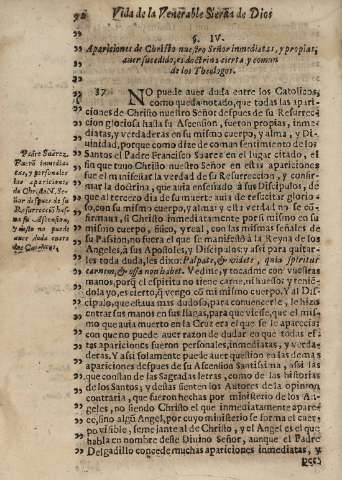 92 Vida de la Venerable Sierva de Dios
§. IV.
Apariciones de Christo nuestro Señor inmediatas, y propias,
auer sucedido, es doctrina cierta y comun
de los Theologos.
37 NO puede auer duda entre los Catolicos,
como queda notado, que todas las apari-
ciones de Christo nuestro Señor despues de su Resurrecció
don gloriosa hasta su Ascension, fueron propias, inme-
diatas, y verdaderas en su mismo cuerpo, y alma, y Di-
uinidad, porque como dize de comun sentimiento de los
Santos el Padre Francisco Suarez en el lugar citado, el
fin que tuuo Christo nuestro Señor en estas apariciones
fue el manifestar la verdad de su Resurreccion, y confir-
mar la doctrina, que auia enseñado à sus Discipulos, de
que al tercero dia de su muerte auia de resucitar glorio-
so, con su mismo cuerpo, y alma: y esta verdad no se cō-
firmaua, si Christo inmediatamente por si mismo en su
mismo cuerpo, fisico, y real, con las mismas señales de
su Passion, no fuera el que se manifestò à la Reyna de los
Angeles, à sus Apostoles, y Discipulos: y assi para quitar-
les toda duda, les dixo: Palpate, & videte, quia spiritus
carnem, & ossa non habet. Vedme, y tocadme con vuestras
manos, porq̃ el espiritu no tiene carne, ni huessos; y tenié-
dola yo, es cierto, q̃ vengo cō mi mismo cuerpo. Y al Dis-
cipulo, que estaua mas dudoso, para conuencerle, le hizo
entrar sus manos en sus llagas, para que viesse, que el mis-
mo que auia muerto en la Cruz era el que se le aparecia:
con que no puede auer razon de dudar en que todas es-
tas apariciones fueron personales, inmediatas, y verda-
deras. Y assi solamente puede auer question en las demas
apariciones despues de su Ascension Santissima, assi las
que constan de las Sagradas letras, como de las historias
de los Santos; y destas sienten los Autores de la opinion
contraria, que fueron hechas por ministerio de los An-
geles, no siendo Christo el que inmediatamente apare-
ce, sino algun Angel, por cuyo ministerio se forma el cuer-
po visible, semejante al de Christo, y el Angel es el que
habla en nombre deste Diuino Señor, aunque el Padre
Delgadillo concede muchas apariciones inmediatas, y
Padre Suarez.
Fuerō inmedia-
tas, y personales
las apariciones
de Christo N. Se-
ñor despues de su
Resurrecciō has-
ta su Ascension,
y en esto no puede
auer duda entre
los Catolicos.